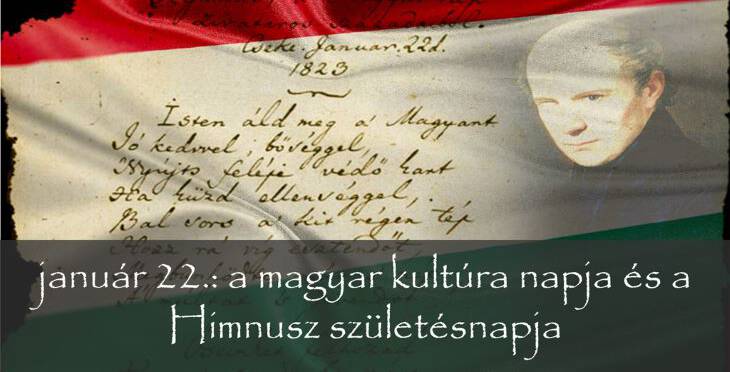 Cseke. Januar. 22d.
1823
Isten áld meg a' Magyart
Jó kedvvel, bőséggel,
Nyújts feléje védő kart
Ha küzd ellenséggel,
Bal sors a' kit régen tép
Hozz rá víg esztendőt,
január 22.: a magyar kultúra napja és a
Himnusz születésnapja